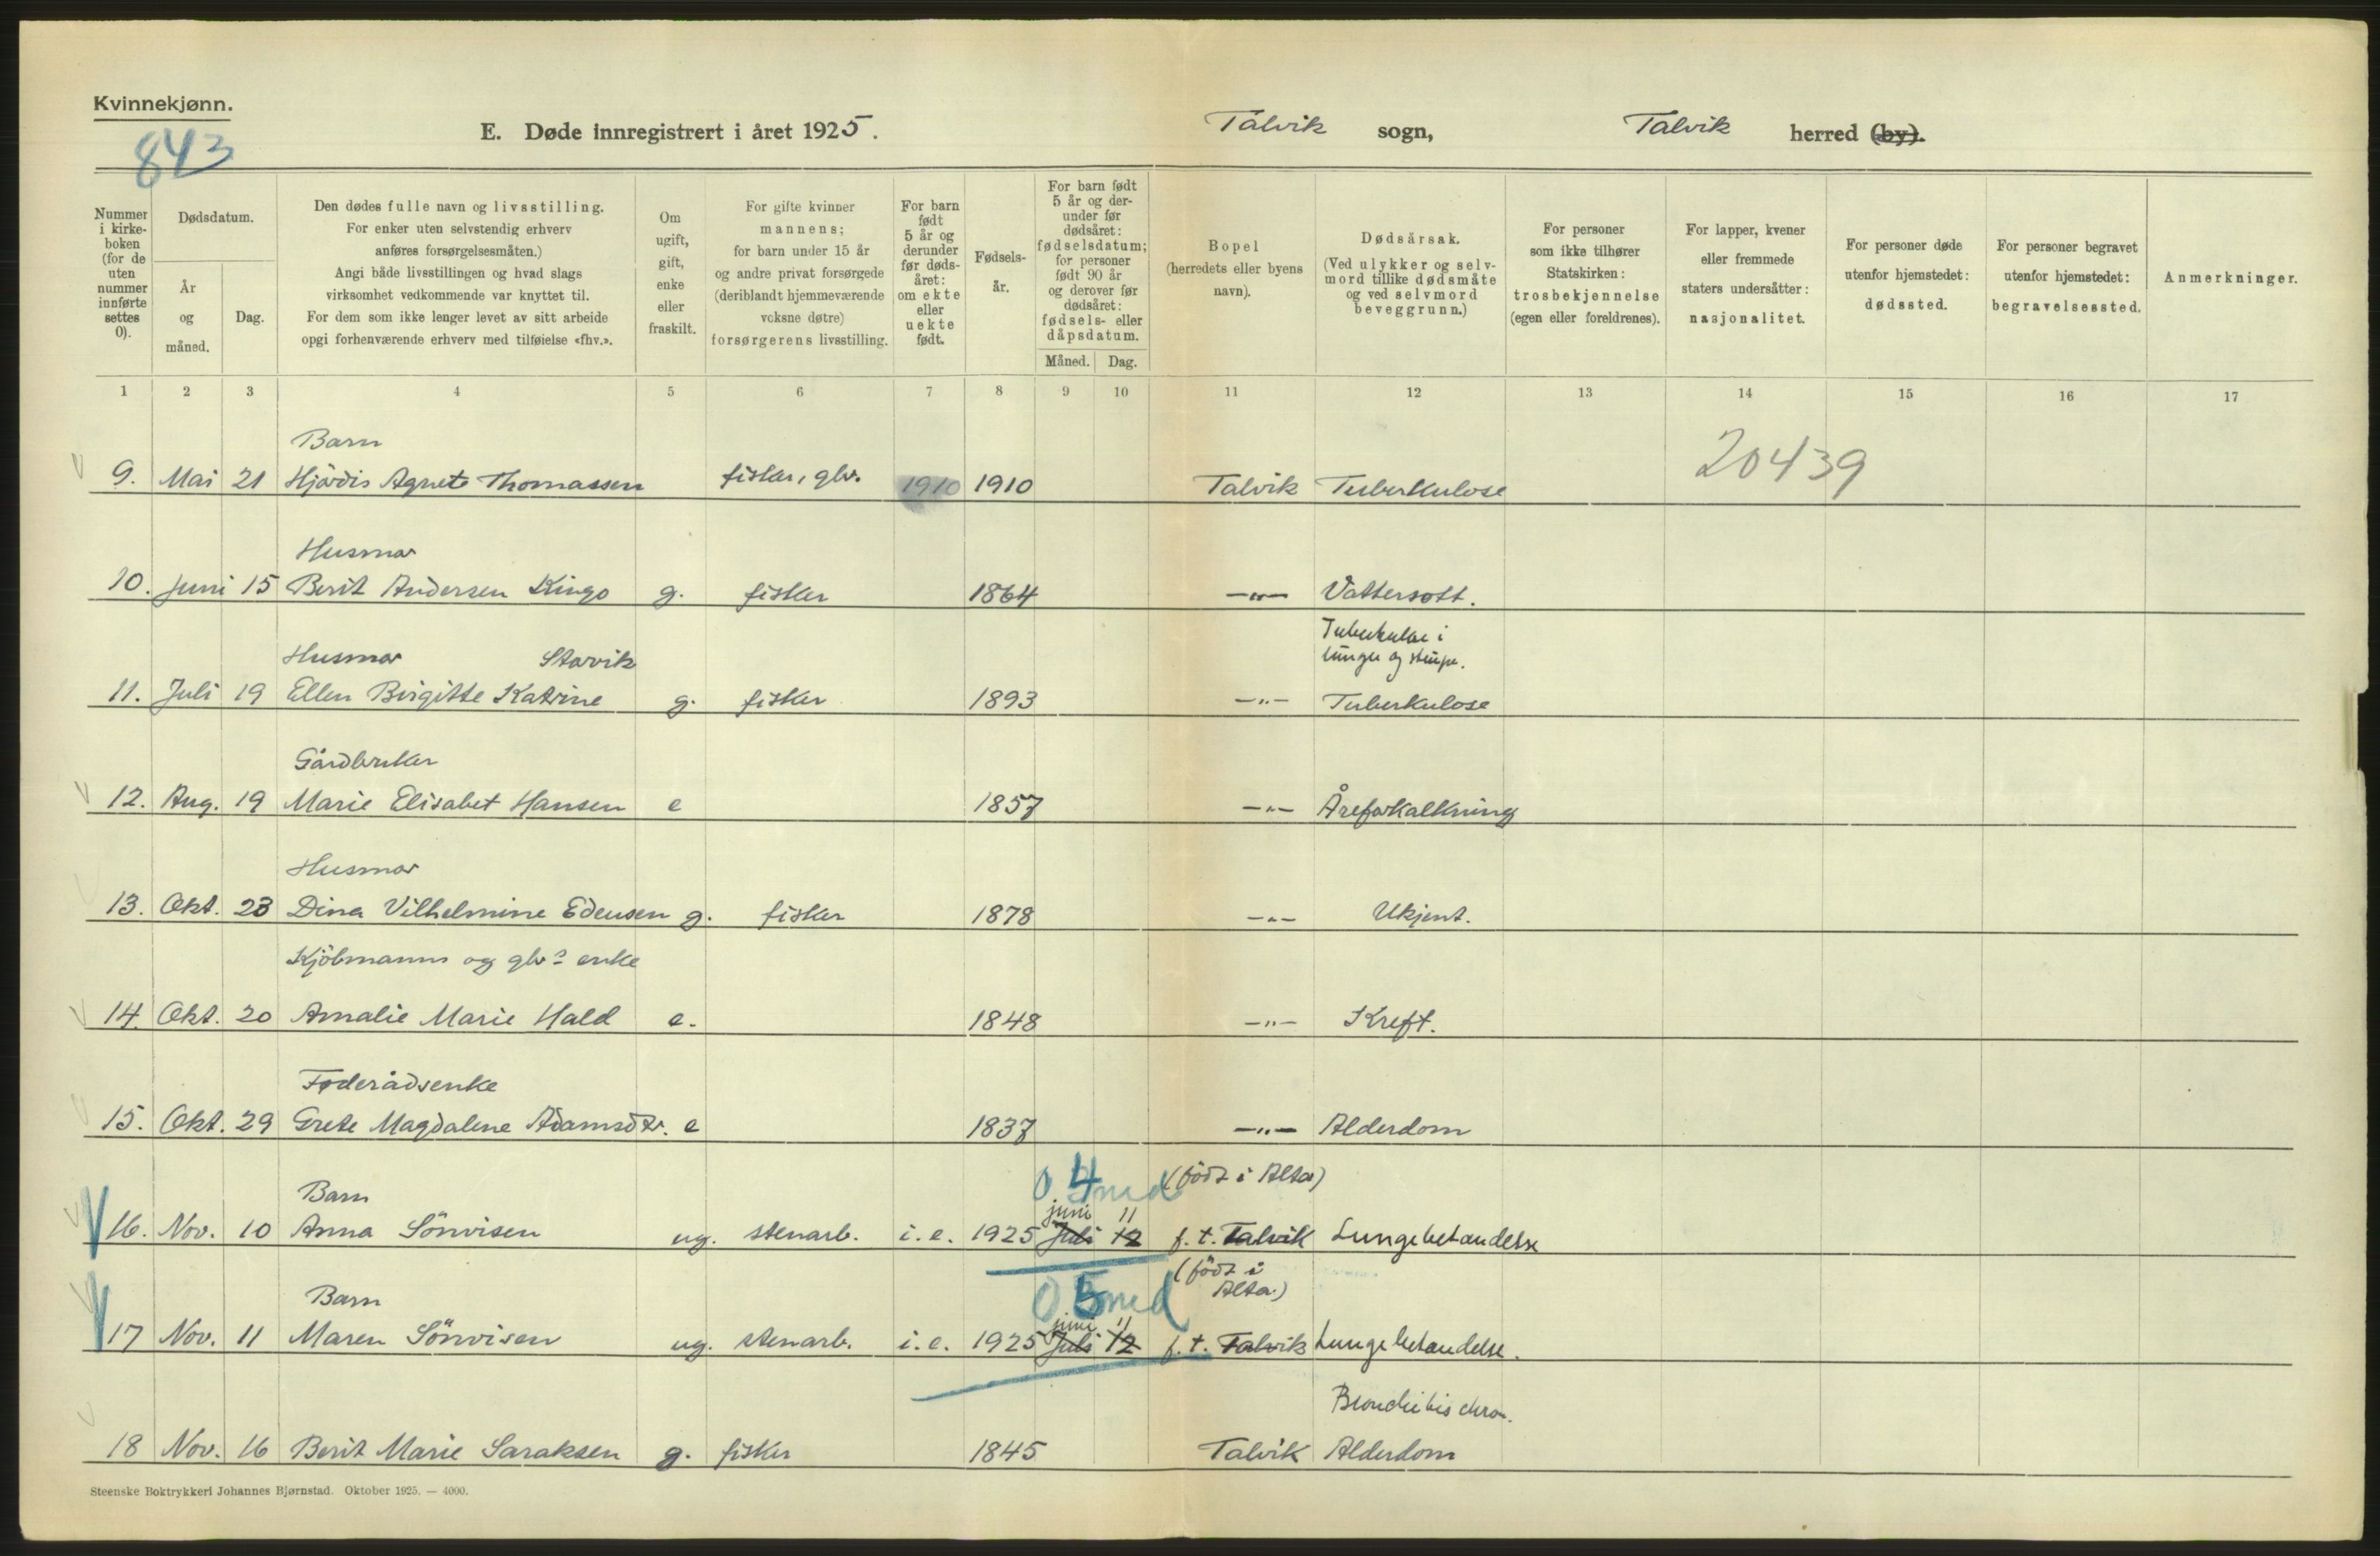 Kvinnekjønn.
843
E. Døde innregistrert i året 1925. Talvik sogn, Talvik herred (by).
Nummer i kirke- boken (for de uten nummer innførte settes 0).
Dødsdatum.
År og måned.
Dag.
Den dødes fulle navn og livsstilling.
For enker uten selvstendig erhverv
anføres forsørgelsesmåten.)
Angi både livsstillingen og hvad slags
virksomhet vedkommende var knyttet til.
For dem som ikke lenger levet av sitt arbeide
opgi forhenværende erhverv med tilføielse «fhv.».
Om ugift, gift, enke eller fraskilt.
For gifte kvinner
mannens;
for barn under 15 år
og andre privat forsørgede
(deriblandt hjemmeværende
voksne døtre)
forsørgerens livsstilling.
For barn født 5 år og derunder før døds- året: om ekte eller uekte født.
Fødsels- år.
For barn født 5 år og der- under før dødsåret: fødselsdatum; for personer født 90 år og derover før dødsåret: fødsels- eller dåpsdatum.
Måned. Dag.
Bopel
(herredets eller byens
navn).
Dødsårsak.
(Ved ulykker og selv-
mord tillike dødsmåte
og ved selvmord
beveggrunn.)
For personer
som ikke tilhører
Statskirken:
trosbekjennelse
(egen eller foreldrenes).
For lapper, kvener
eller fremmede
staters undersåtter:
nasjonalitet.
For personer døde
utenfor hjemstedet:
dødssted.
For personer begravet
utenfor hjemstedet:
begravelsessted.
Anmerkninger.
1 2 3 4 5 6 7 8 9 10 11 12 13 14 15 16 17
Barn
9. Mai 21 Hjördis Agnete Thomassen fisker, gbr. 1910 1910 Talvik Tuberkulose 20439
Husmor
10. Juni 15 Berit Andersen Kingo g. fisker 1864 —"— Vattersott.
Tuberkulose i
lunger og strupe.
Husmor Storvik
11. Juli 19 Ellen Birgitte Katrine g. fisker 1893 —"— Tuberkulose
Gårdbruker
12. Aug. 19 Marie Elisabet Hansen e 1857 —"— Åreforkalkning
Husmor
13. Okt. 23 Dina Vilhelmine Edensen g. fisker 1878 —"— Ukjent.
Kjöbmanns og gbrs enke
14. Okt. 20 Amalie Marie Hald e. 1848 —"— Kreft.
Føderådsenke
15. Okt. 29 Grete Magdalene Adamsdtr. e 1837 —"— Alderdom
0 4 md (födt i Alta)
Barn juni 11
16. Nov. 10 Anna Sönvisen ug. stenarb. i.e. 1925 Juli 12 f.t. Talvik Lungebetændelse
0 5 md (födt i
Alta.)
Barn juni 11
17 Nov. 11 Maren Sönvisen ug. stenarb. i.e. 1925 Juli 12 f.t. Talvik Lungebetændelse.
Bronchitis chron.
18 Nov. 16 Berit Marie Saraksen g. fisker 1845 Talvik Alderdom
Steenske Boktrykkeri Johannes Bjørnstad. Oktober 1925. — 4000.